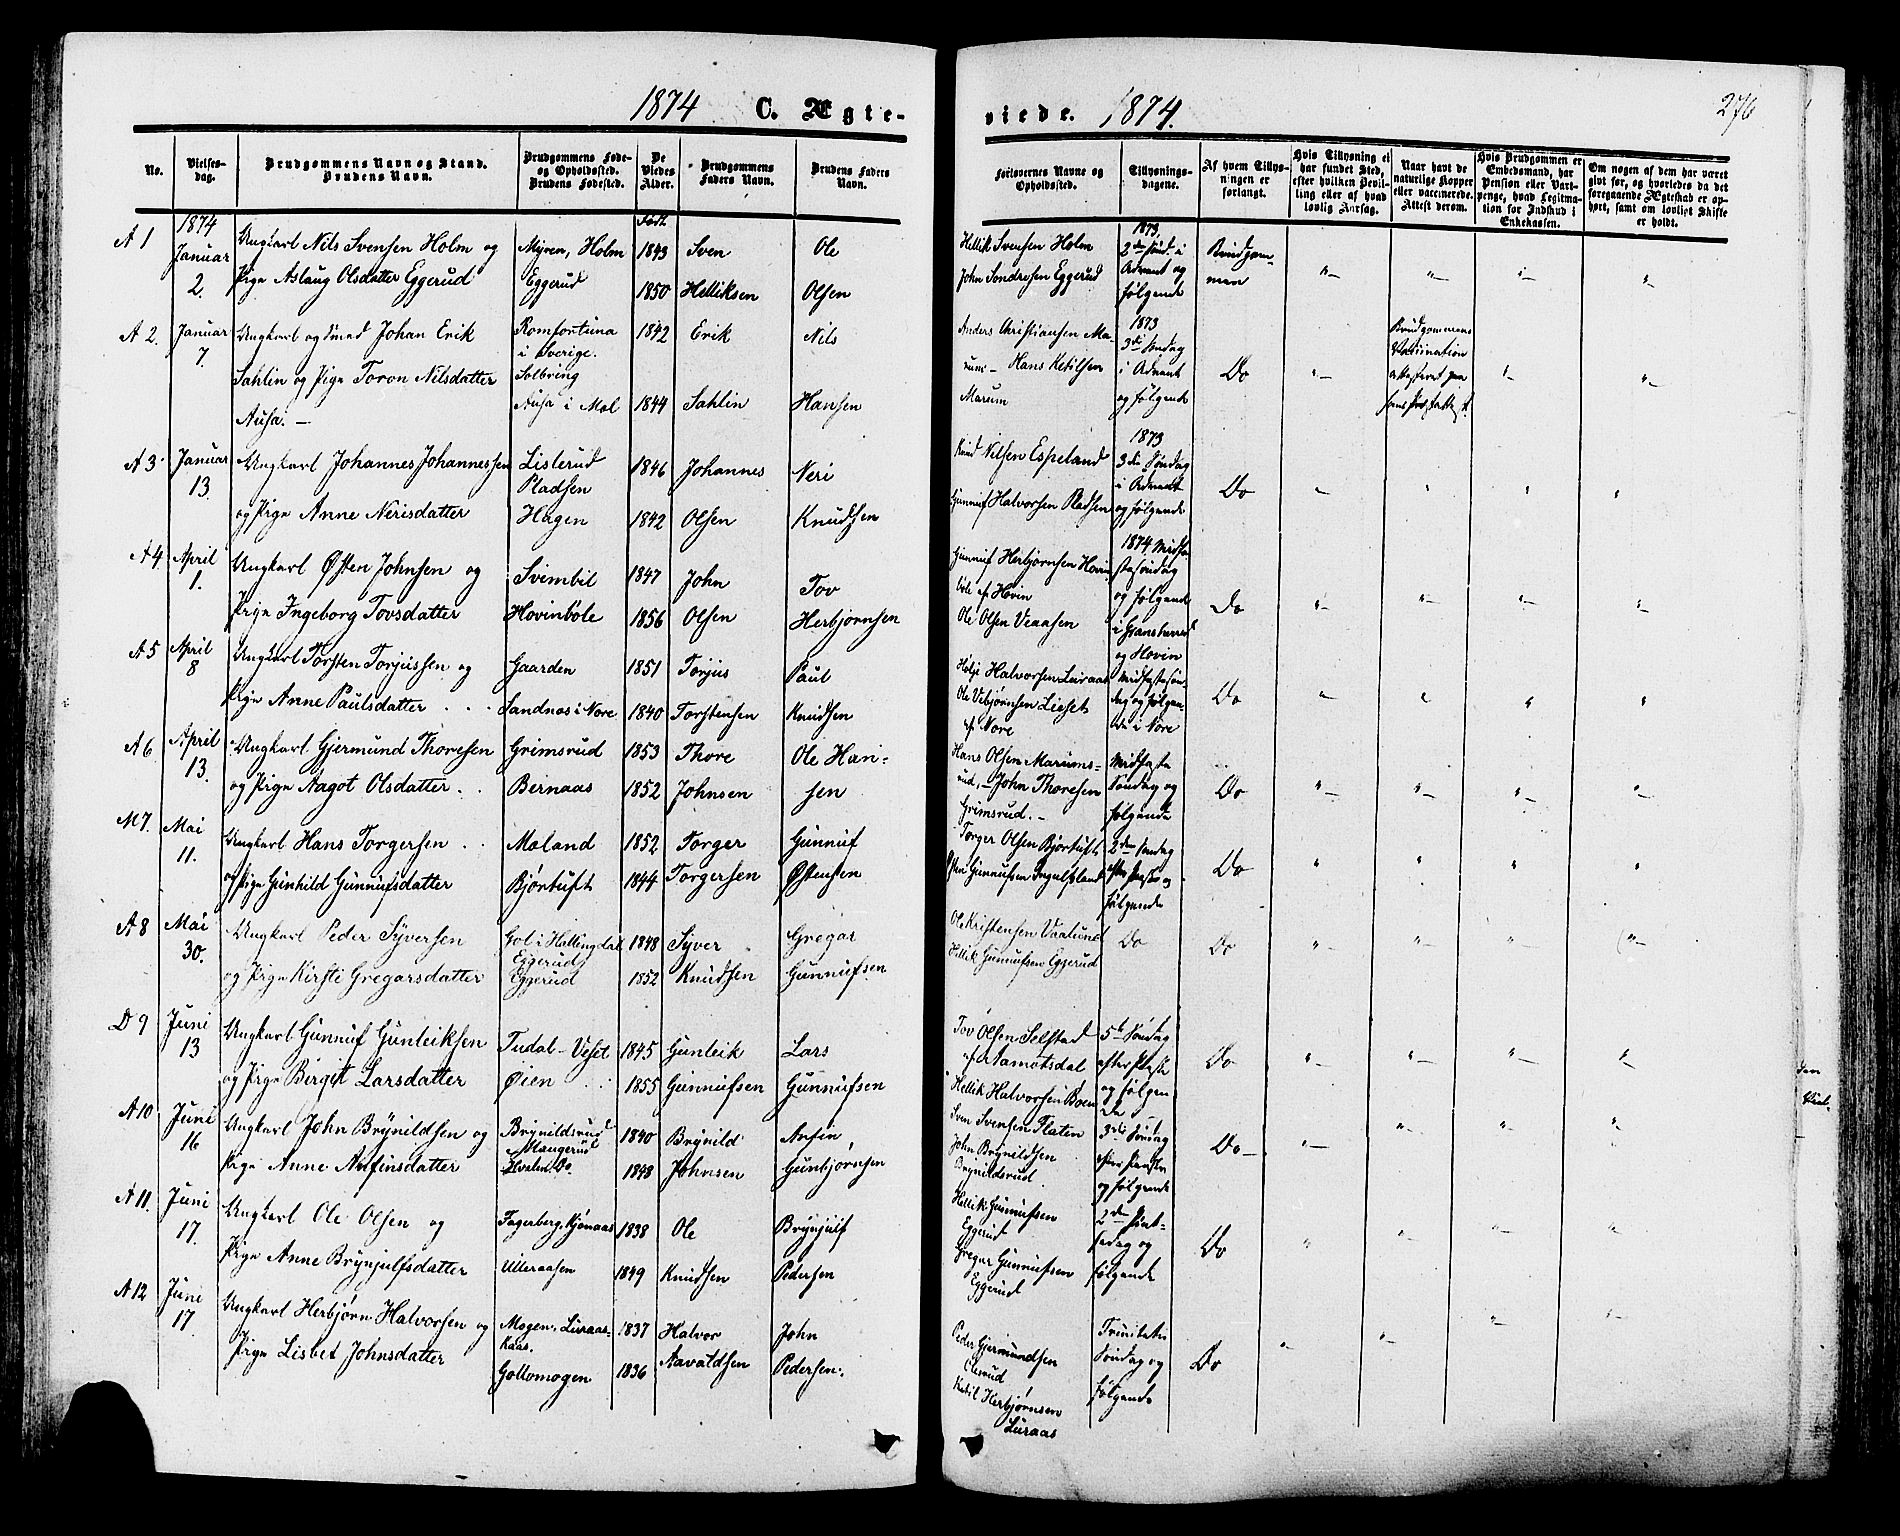 1874 C. Ægte-
No.
Vielses-
dag.
Brudgommens Navn og Stand.
Brudens Navn.
Brudgommens Føde-
og Opholdssted.
Brudens Fødested.
De
Viedes
Alder.
Brudgommens
Faders Navn.
Brudens Faders
Navn.
1874 Født
A 1 Januar Ungkarl Nils Svensen Holm og Myren, Holm 1843 Sven Ole
2. Pige Aslaug Olsdatter Eggerud Eggerud 1850 Helliksen Olsen
A 2. Januar Ungkarl og Smed Johan Erik Romfortuna 1842 Erik Nils
7. i Sverige.
Sahlin og Pige Toron Nilsdatter Solbring
Ausa. — Ausa i Mæl 1844 Sahlin Hansen
A 3 Januar Ungkarl Johannes Johannessen Listerud 1846 Johannes Neri
13. Pladsen
og Pige Anne Nerisdatter Hagen 1842 Olsen Knudsen
A 4. April Ungkarl Østen Johnsen og Svimbil 1847 John Tov
1. Pige Ingeborg Tovsdatter Hovinbøle 1856 Olsen Herbjørnsen
A 5 April Ungkarl Torsten Torjussen og Gaarden 1851 Torjus Paul
8 Pige Anne Paulsdatter Sandnæs i Nore 1840 Torstensen Knudsen
A 6 April Ungkarl Gjermund Thoresen Grimsrud 1853 Thore Ole Han-
13. og Pige Aagot Olsdatter Bernaas 1852 Johnsen sen
M 7. Mai Ungkarl Hans Torgersen Moland 1852 Torger Gunnuf
11. og Pige Gunhild Gunnufsdatter Bjørtuft 1844 Torgersen Østensen
A 8 Mai Ungkarl Peder Syversen Gol i Hallingdal 1848 Syver Gregar
30. Eggerud
og Pige Kirsti Gregarsdatter Eggerud 1852 Knudsen Gunnufsen
D 9 Juni Ungkarl Gunnuf Gunleiksen Tudal - Veset 1845 Gunleik Lars
13 og Pige Birgit Larsdatter Øien 1855 Gunnufsen Gunnufsen
A 10 Juni Ungkarl John Brynildsen og Brynildsrud 1840 Brynild Anfin
16 Maugerud
Pige Anne Anfinsdatter 1848 Johnsen Gunbjørnsen
A 11. Juni Ungkarl Ole Olsen og Fagerberg, Kjønaas 1838 Ole Brynjulf
17. Pige Anne Brynjulfsdatter Ulleraasen 1849 Knudsen Pedersen
A 12 Juni Ungkarl Herbjørn Halvorsen og Mogen, Luraas- 1837 Halvor John
17. kaas.
Pige Lisbet Johnsdatter Gollomogen 1836 Aavaldsen Pedersen.
viede. 1874. 276
Forlovernes Navne og
Opholdssted.
Tillysnings-
dagene.
Af hvem Tillys-
ningen er
forlangt.
Hvis Tillysning ei
har fundet Sted,
efter hvilken Bevil-
ling eller af hvad
lovlig Aarsag.
Naar havt de
naturlige Kopper
eller vaccinerede.
Attest derom.
Hvis Brudgommen er
Embedsmand, har
Pension eller Vart-
penge, hvad Legitima-
tion for Indskud i
Enkekassen.
Om nogen af dem har været
gift før, og hvorledes da det
foregaaende Ægteskab er op-
hørt, samt om lovligt Skifte
er holdt.
1873.
Hellik Svensen Holm 2den Sønd. i Brudgom-
John Sondresen Eggerud Advent og men
følgende
Anders Christiansen Ma- 1873 Brudgommens
rum - Hans Ketilsen 3die Søndag Do Vaccination
Marum i Advent
og følgende
Knud Nilsen Espeland 1873
3die Søndag
Gunnuf Halvorsen Pladsen i Advent Do
og følgende
Gunnuf Herbjørnsen Hovin- 1874 Midfa-
bøle af Hovin stesøndag
Ole Olsen Veaasen og følgende Do
i Gransherred
og Hovin
Helje Halvorsen Luraas Midfastesøn-
Ole Vebjørnsen Lieset dag og følgen- Do
af Nore de i Nore
Hans Olsen Marums- Midfaste
rud, - John Thoresen Søndag og Do
Grimsrud. - følgende
Torger Olsen Bjørtuft 2den Søndag
Østen Gunnufsen Ingulfsland efter Paaske og Do
følgende
Ole Kristensen Vaalund Do Do
Hellik Gunnufsen Eggerud
Tov Olsen Selstad 5te Søndag
af Aamotsdal efter Paaske Do
Hellik Halvorsen Boen og følgen
de
Sven Svensen Flaten 3die Søndag
John Brynildsen efter Paaske Do
Brynildsrud. og følgende
Hellik Gunnufsen 2den Pint-
Eggerud sedag og Do
Gregar Gunnufsen følgende
Eggerud
Peder Gjermundsen Trinitatis
Søndag og Do
Ketil Herbjørnsen følgende
Luraas